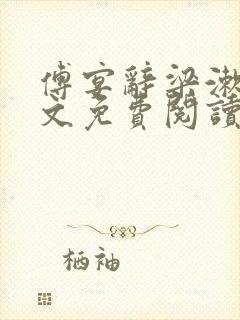 傅宴辭梁漱
文免費閱讀
栖袖